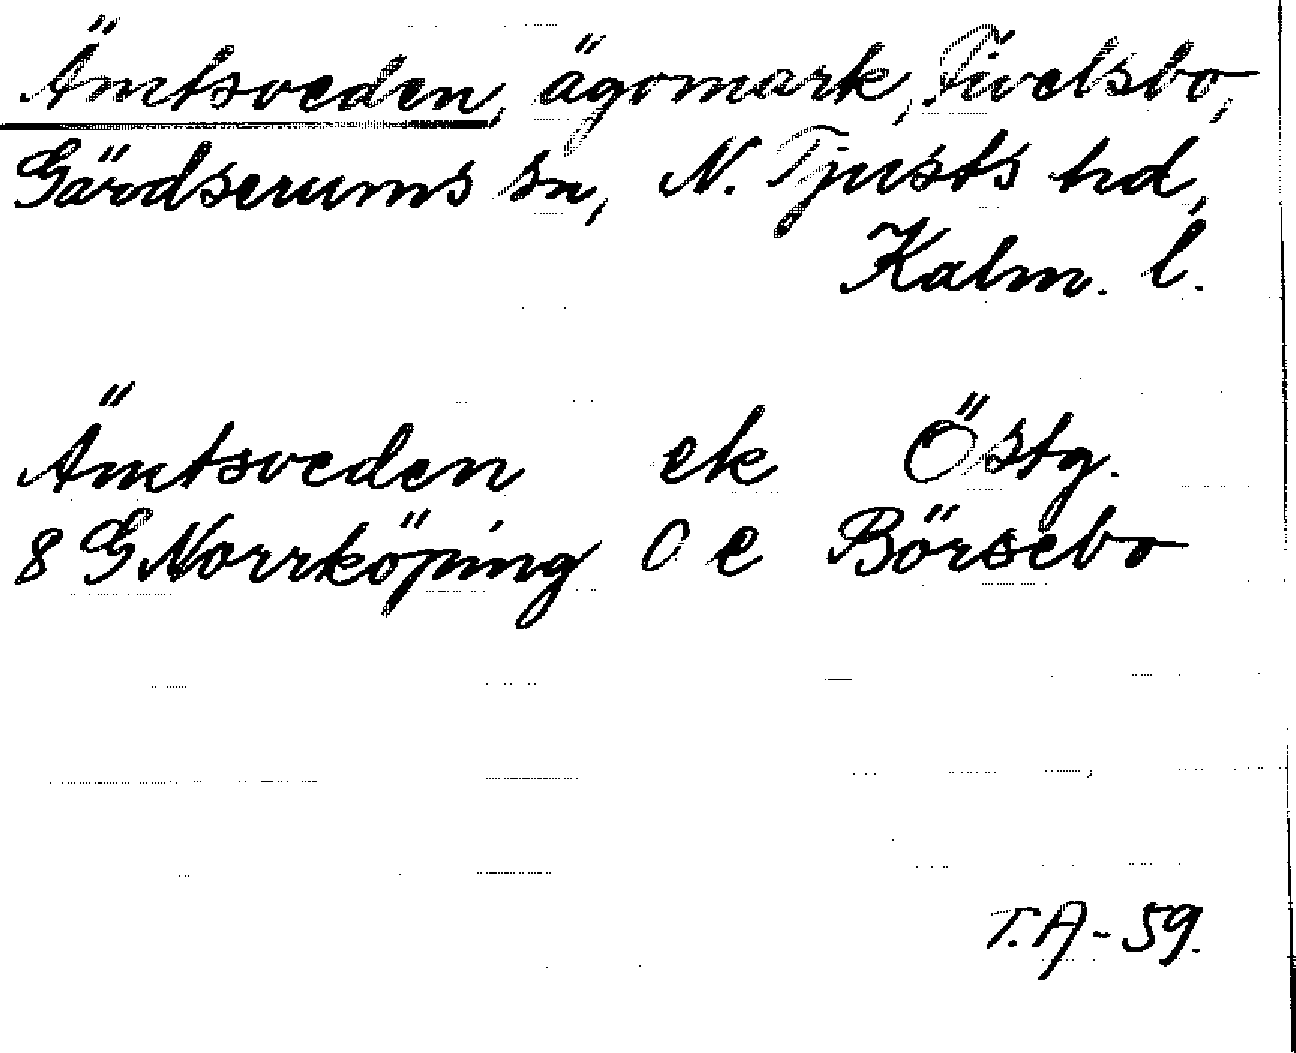 Ämtsveden, ägomark, Fivelsbo,
Gärdserums sn, N. Tjusts hd,
Kalm. l.
Ämtsveden ek Östg.
8 G Norrköping 0 e Börsebo
T.A-59.